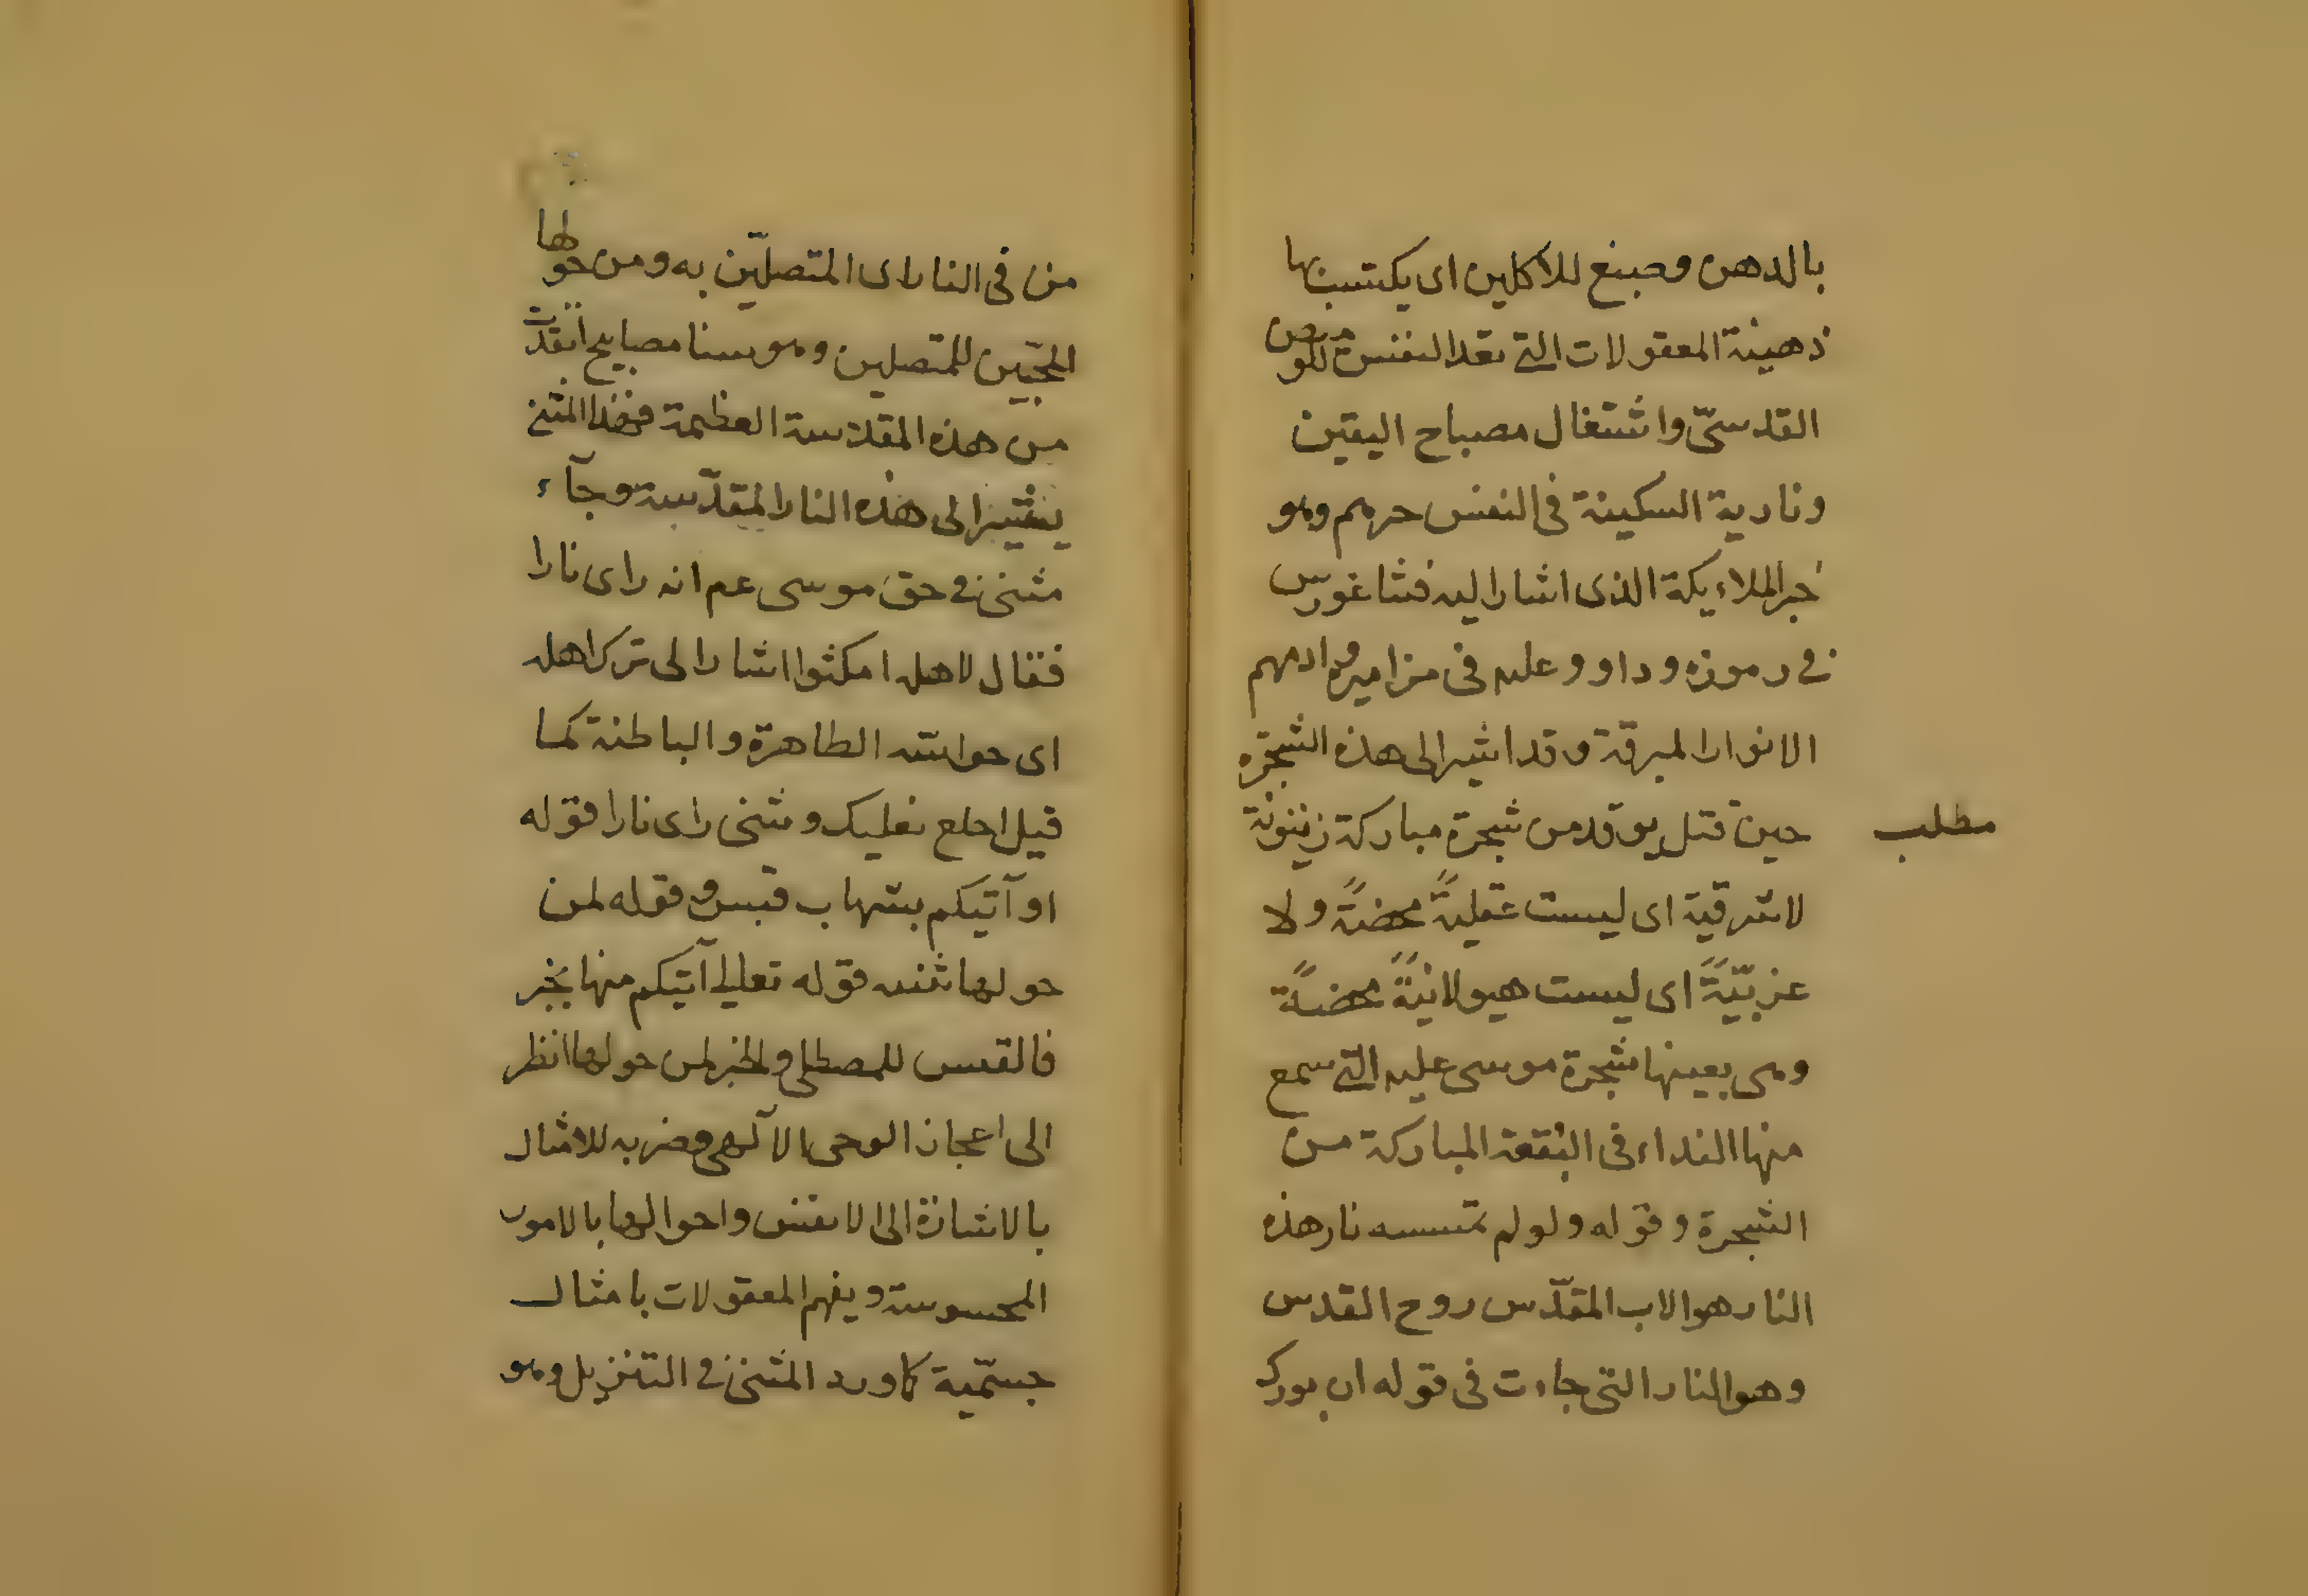 بالدهن وصبغ للاكلين اى يكتسب بها
ذهينة المعقولات التى تعد النفس للومض
القدسىّ واشتغال مصباح اليقين
ونارية السكينة فى النفس حرمم وهو
خبر الملاءيكة الذى اشار اليه فثاغورس
فى رموزه وداوو عليه فى مزاميره وادمهم
الانوار المبرقة وقد اشير الى هذه الشجرة
مطلب
حين قتل يوقد من شجرة مباركة زيتونة
لاشرقية اى ليست عقليةً محضةً ولا
غربيّةً اى ليست هيولانيةً محضةً
وهى بعينها شجرة موسى عليه التى سمع
منها النداء فى البقعة المباركة من
الشجرة وقوله ولو لم تمسسه نار هذه
النار هو الاب المقدّس روح القدس
وهو النار التى جاءت فى قوله ان بورك
من فى النار اى المتصلّين به ومن حولها
المحبّين للمتصلين وهو سنا مصابيح اتقدت
من هذه المقدسة العظيمة فهذا المثنى
يشير الى هذه النار المقدّسة وجآء
مثنى فى حق موسى عم انه راى نارا
فقال لاهله امكثوا اشار الى ترك اهله
اى حواسه الطاهرة والباطنة كما
قيل احلع نعليك ومثنى راى نارا قوله
او آتيكم بشهاب قبس وقوله لمن
حولها ثنيه قوله تعالى آتيكم منها بخبر
فالقبس للمصطلى والخبر لمن حولها انظر
الى اعجاز الوحى الآلهى وضربه للامثال
بالاشارة الى الانفس واحوالها بالامور
المحسوسة ويفهم المعقولات بامثال
جسّمية كما ورد المثنى فى التنزيل وهو